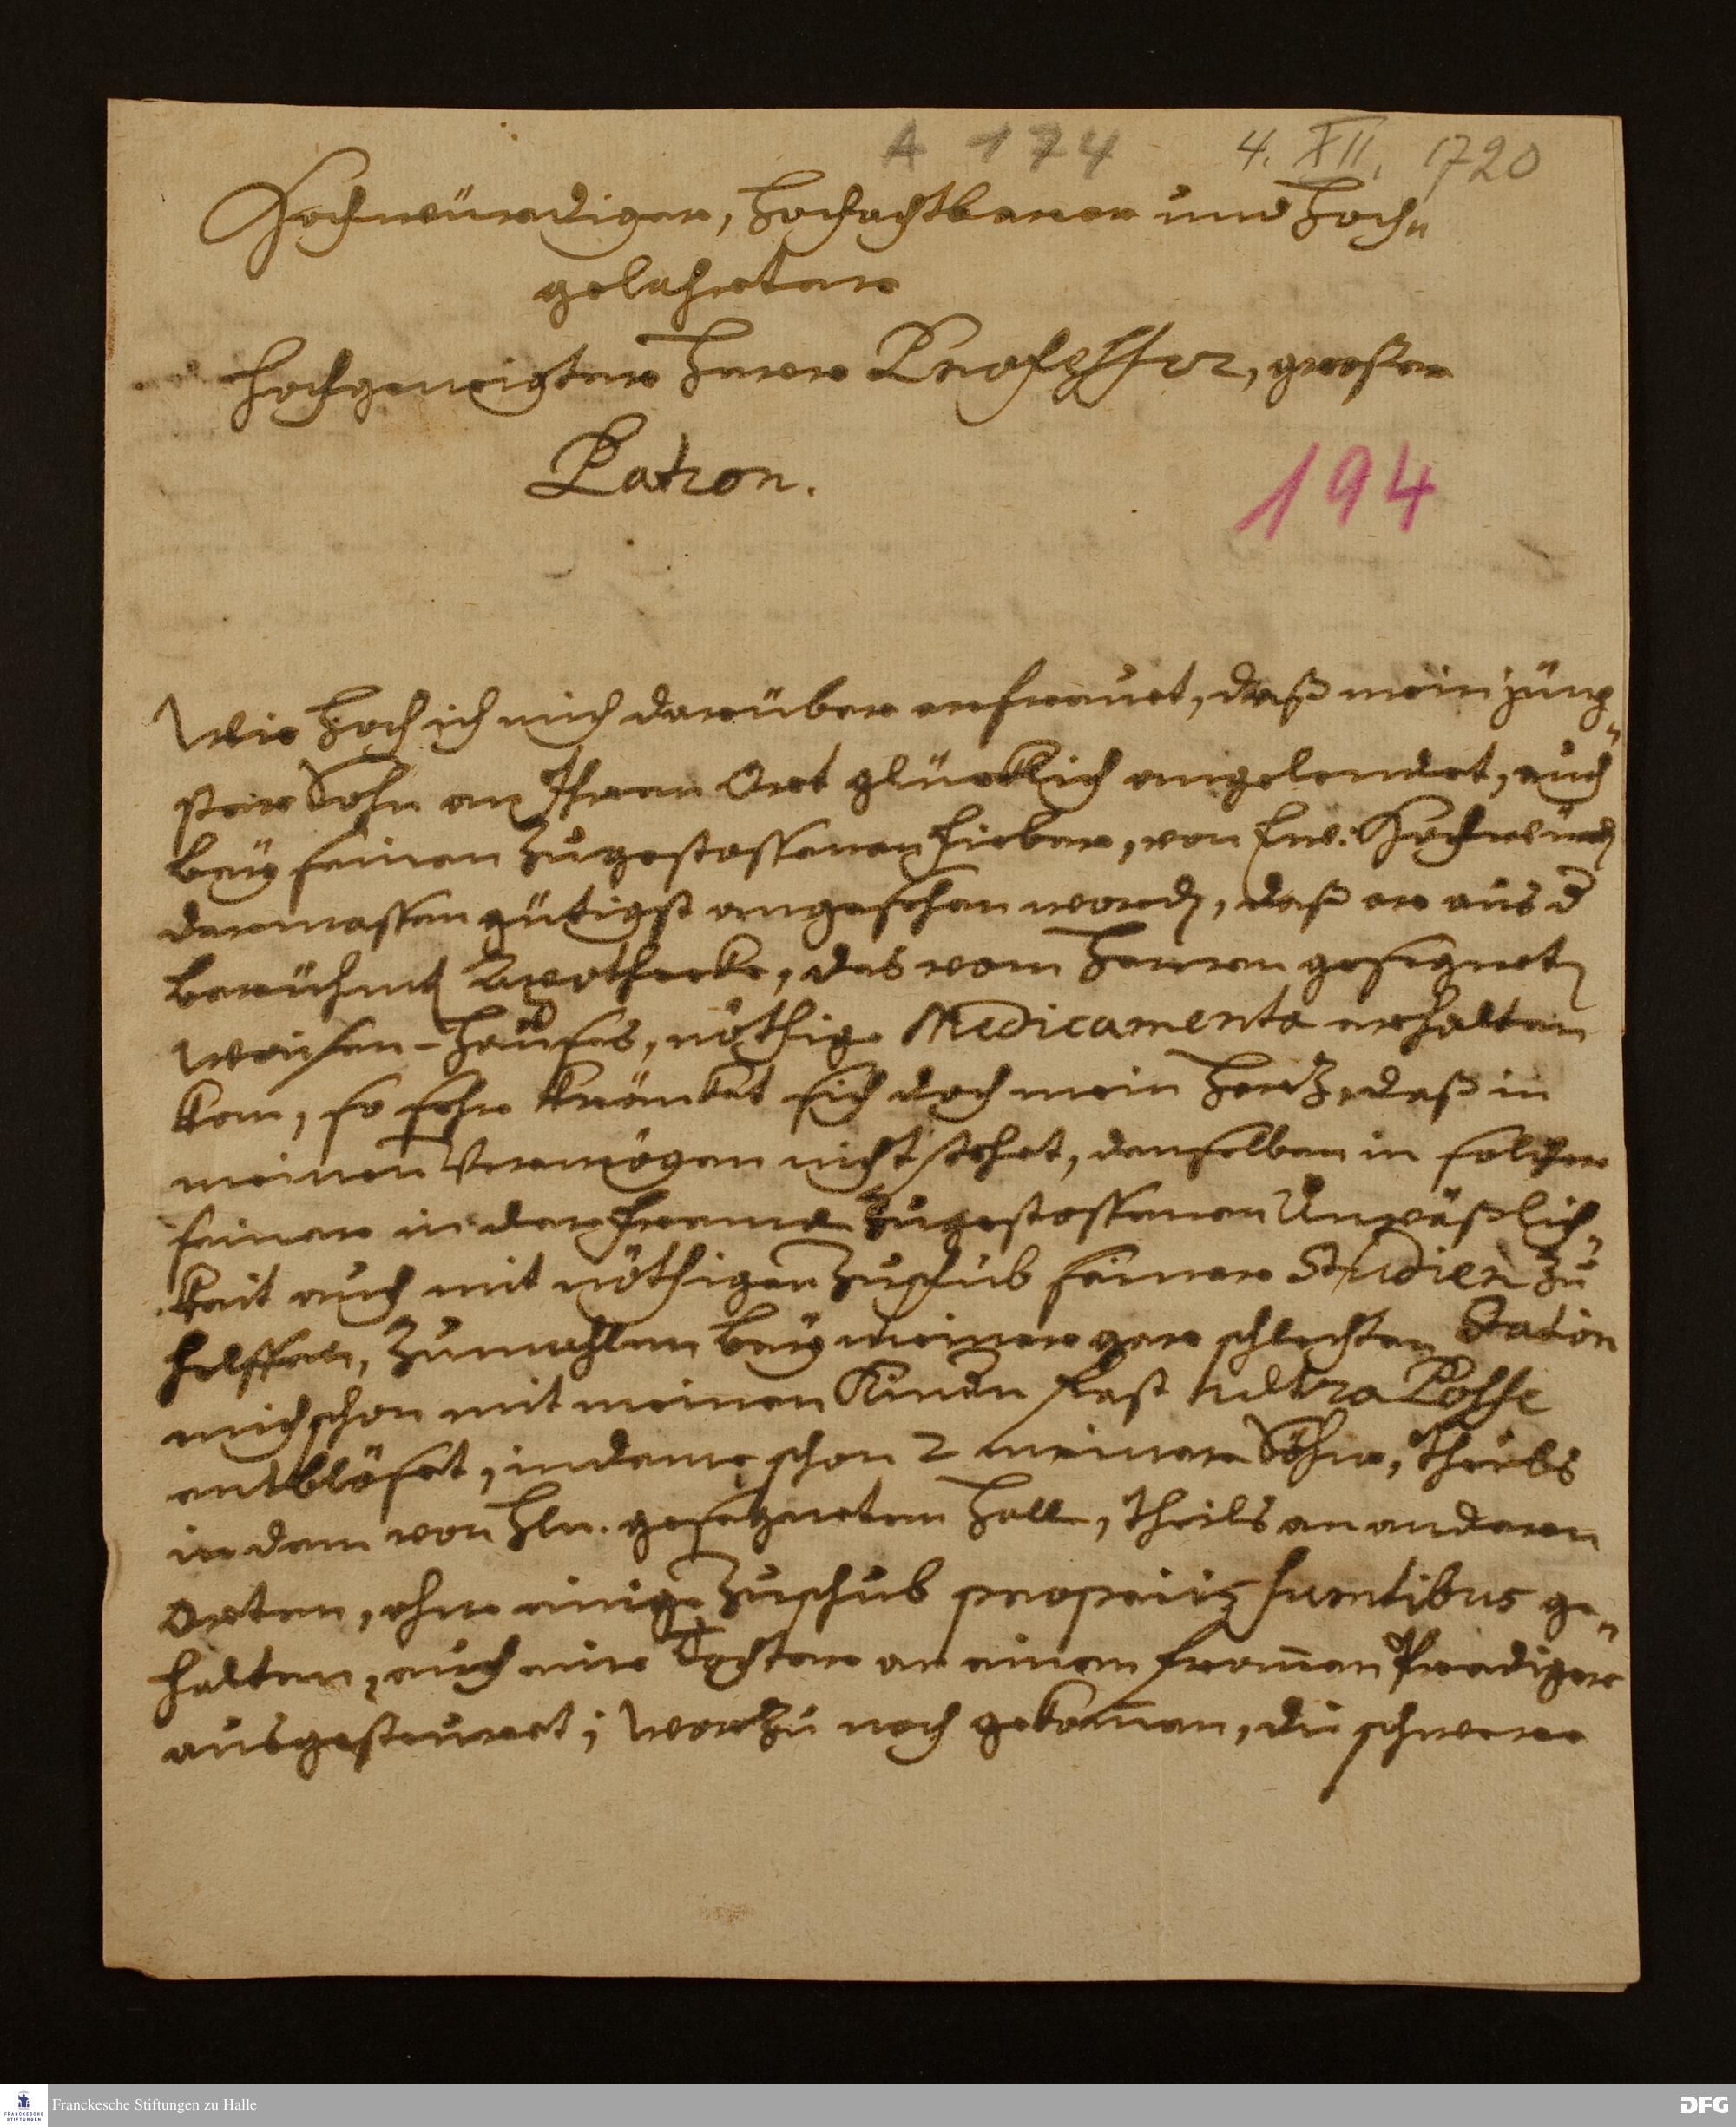 A 174 4. XII. 1720
Hochwürdiger, Hochachtbarer und Hoch„
gelahrter
Hochgeneigter Herr Professor, großer
Patron.
194
Wie hoch ich mich darüber erfreuet, daß mein jüng„
ster Sohn an Ihren Ort glücklich angelendet, auch
bey seinen zugestossenen Fieber, von Ew. Hochwürd
dermassen gütigst angesehen word, daß er aus d
berühmt Apothecke, des vom Herren gesegnet
Waisen-Hauses, nöthige Medicamenta erhalten
kon, so sehr kräncket sich doch mein Hertz, daß in
meinen Vermögen nicht stehet, denselben in solcher
seiner in der Fremde zugestossenen Unpäßlich„
keit auch mit nöthigen Zuschub seiner Studien zu
helffen, zumahlen bey meiner gar schlechten Station
mich schon mit meinen Kindn fast ultra Posse
entblöset, indeme schon 2 meiner Söhne, theils
in dem von Hln. gesegneten Halle, theils an andern
Orten, ohne einige Zuschub propriis sumtibus ge„
halten, auch eine Tochter an einen fromen Prediger
ausgesteuret; Worzu noch gekomen, die schwere
Franckesche Stiftungen zu Halle
DFG